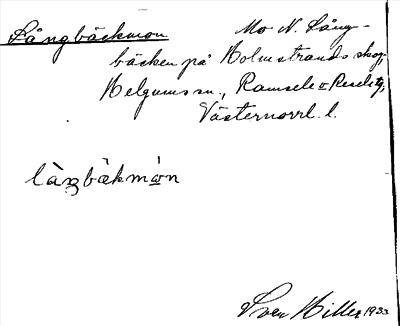 Långbäckmon Mo N. Lång-
bäcken på Holmstrands skog,
Helgums sn., Ramsele o Resele tg,
Västernorrl. l.
làŋbäkmɷ̀n
Sven Hillec 1933